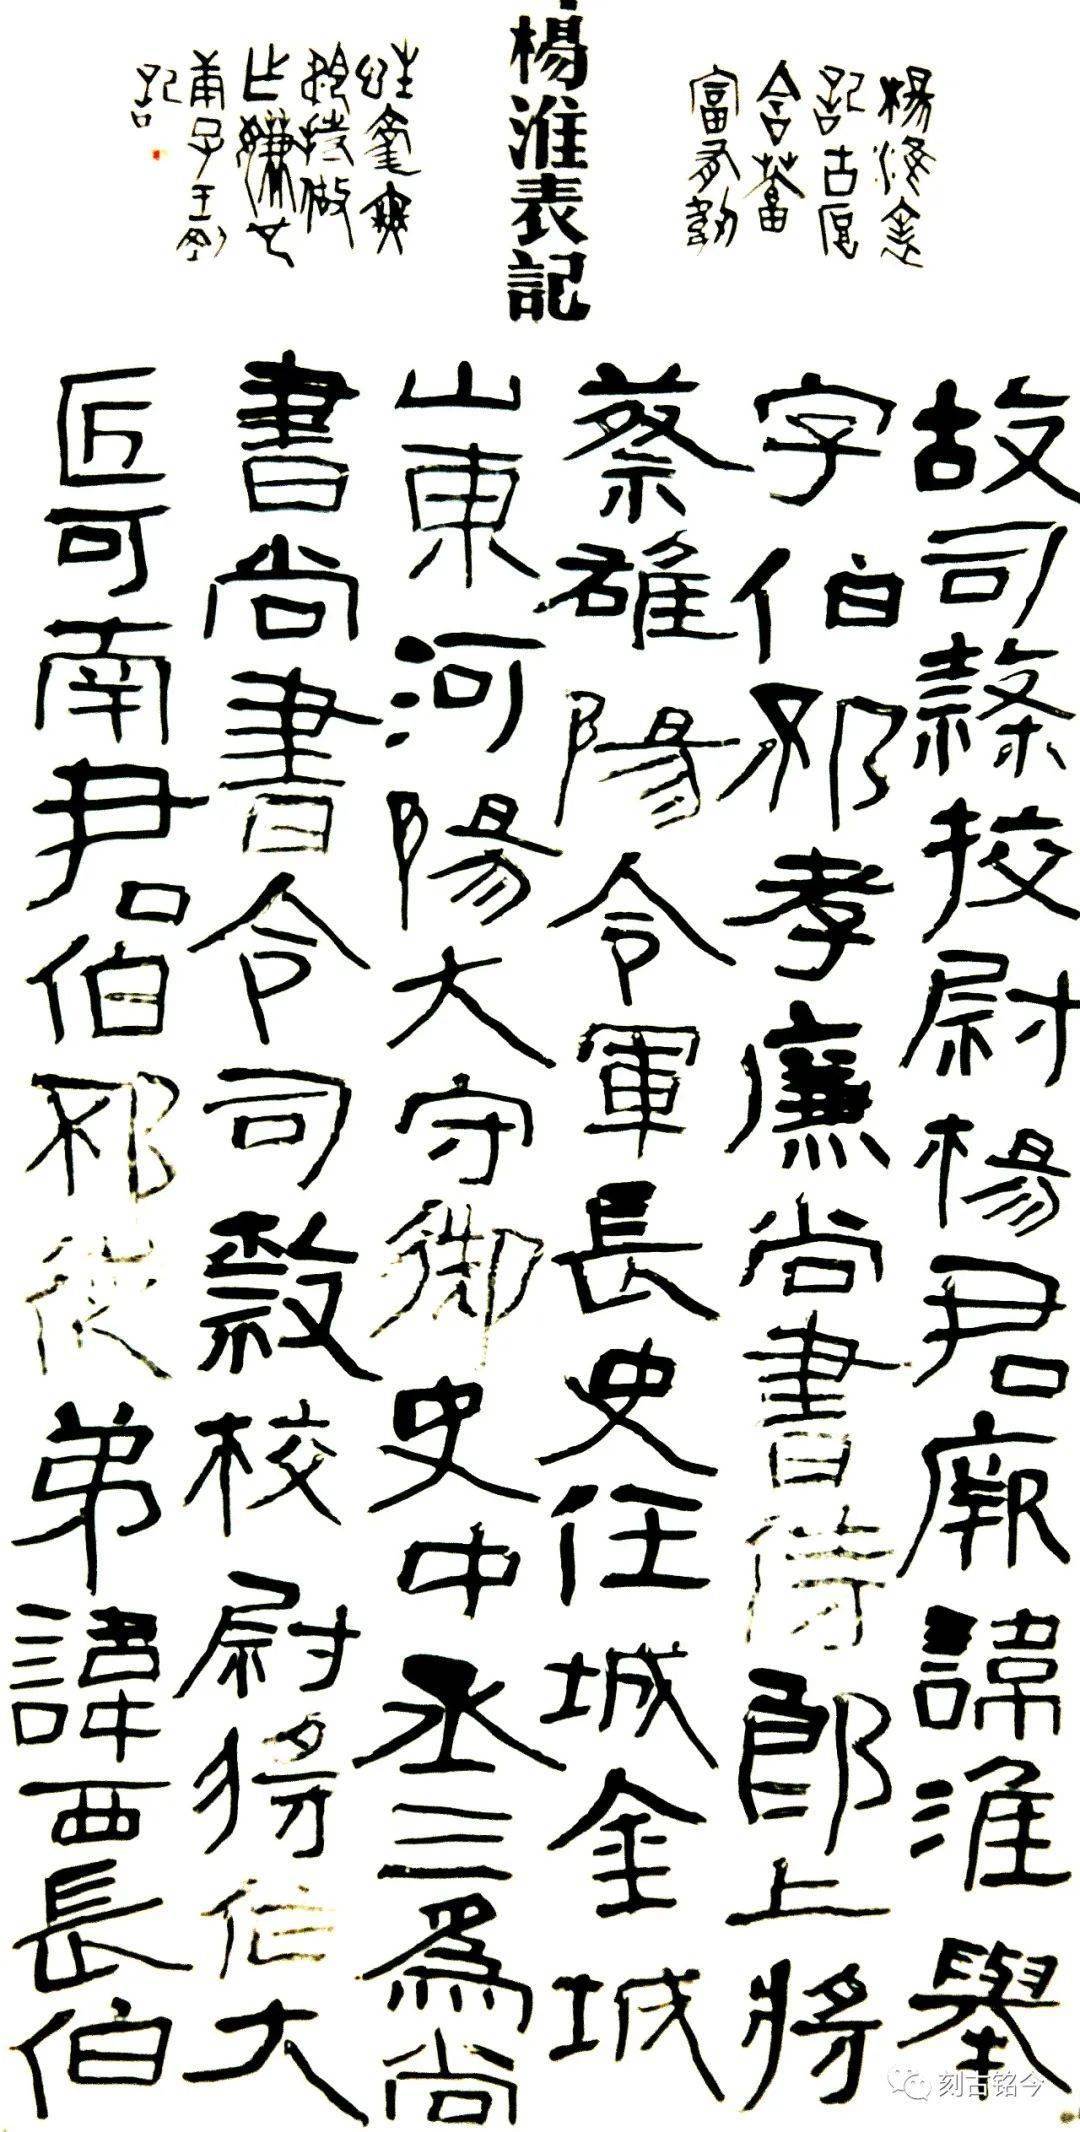 楊淮表記
楊淮表
記古厚
含蓄
富
故司隸挍尉楊君厥諱淮舉
字伯邳孝廉尚書侍郎上將
蔡雒陽令軍長史任城金城
山東河陽大守御史中丞三為尚
書尚書令司隸校尉將作大
匠可南君伯邳從弟諱西長伯
記
刻古铭今